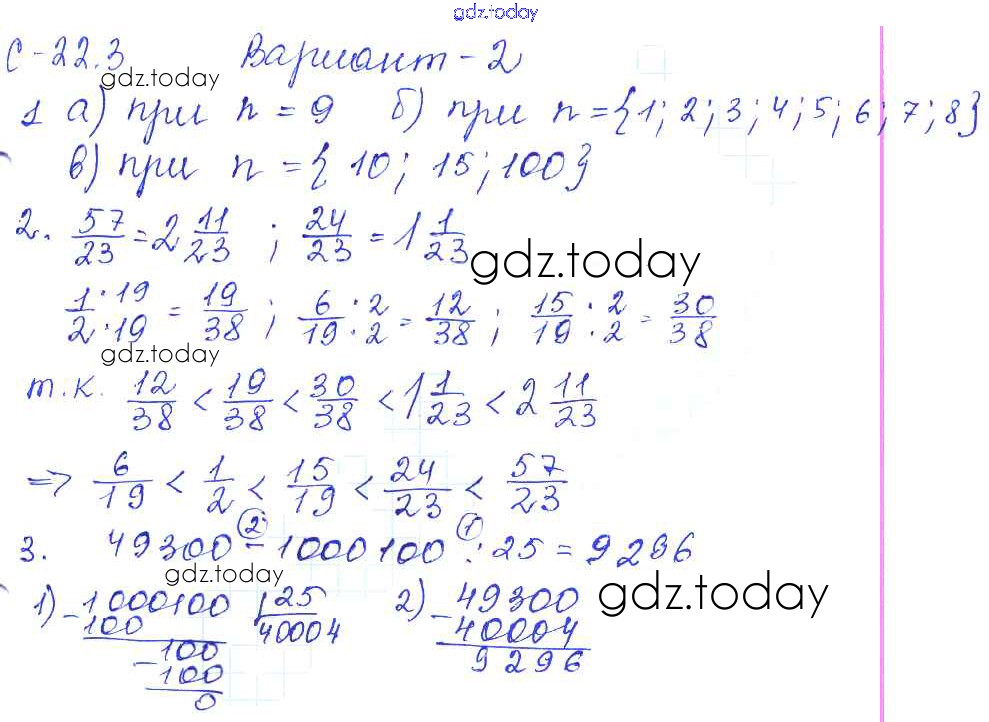 gdz.today
С-22.3 Вариант-2
gdz.today
1 а) при n = 9 б) при n = {1; 2; 3; 4; 5; 6; 7; 8}
в) при n = { 10; 15; 100}
2. 57/23 = 2 11/23 ; 24/23 = 1 1/23
gdz.today
1·19/2·19 = 19/38 ; 6·2/19·2 = 12/38 ; 15·2/19·2 = 30/38
gdz.today
т.к. 12/38 < 19/38 < 30/38 < 1 1/23 < 2 11/23
=> 6/19 < 1/2 < 15/19 < 24/23 < 57/23
3. 49300 -② 1000100 :① 25 = 9296
gdz.today
gdz.today
1) - 1000100 | 25 2) - 49300
100 40004 40004
100 9296
- 100
0